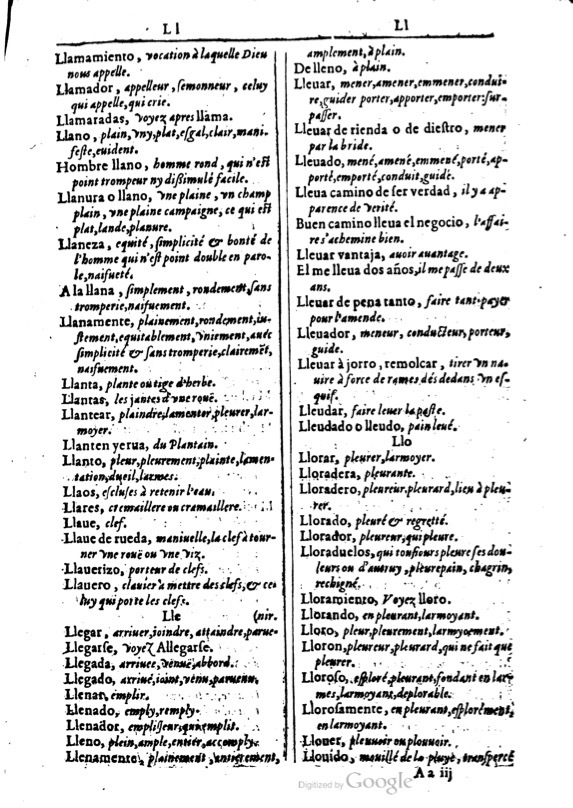 Ll
Llamamiento, vocation à laquelle Dieu
nous appelle.
Llamador, appelleur, semonneur, celuy
qui appelle, qui crie.
Llamaradas, voyez apres llama.
Llano, plain, vny, plat, esgal, clair, mani-
feste, euident.
Hombre llano, homme rond, qui n'est
point trompeur ny dissimulé facile.
Llanura o llano, vne plaine, vn champ
plain, vne plaine campagne, ce qui est
plat, lande, planure.
Llaneza, equité, simplicité & bonté de
l'homme qui n'est point double en paro-
le, naifueté.
A la llana, simplement, rondement, sans
tromperie, naifuement.
Llanamente, plainement, rondement, iu-
stement, equitablement, vniement, auec
simplicité & sans tromperie, clairemẽt,
naifuement.
Llanta, plante ou tige d'herbe.
Llantas, les jantes d'vne rouë.
Llantear, plaindre, lamenter, pleurer, lar-
moyer.
Llanten yerua, du Plantain.
Llanto, pleur, pleurement, plainte, lamen-
tation, dueil, larmes.
Llaos, escluses à retenir l'eau.
Llares, cremaillere ou cramaillere.
Llaue, clef.
Llaue de rueda, maniuelle, la clef à tour-
ner vne rouë ou vne viz.
Llauerizo, porteur de clefs.
Llauero, clauier à mettre des clefs, & ce-
luy qui porte les clefs.
Lle (nir.
Llegar, arriuer, joindre, attaindre, parue-
Llegarse, voyez Allegarse.
Llegada, arriuee, venuë, abbord.
Llegado, arriué, joint, venu, paruenu.
Llenar, emplir.
Llenado, emply, remply.
Llenador, emplisseur, qui emplit.
Lleno, plein, ample, entier, accomply.
Llenamente, plainement, entierement,
Ll
amplement, à plain.
De lleno, à plain.
Lleuar, mener, amener, emmener, condui-
re, guider porter, apporter, emporter: sur-
passer.
Lleuar de rienda o de diestro, mener
par la bride.
Lleuado, mené, amené, emmené, porté, ap-
porté, emporté, conduit, guidé.
Lleua camino de ser verdad, il y a ap-
parence de verité.
Buen camino lleua el negocio, l'affai-
re s'achemine bien.
Lleuar vantaja, auoir auantage.
El me lleua dos años, il me passe de deux
ans.
Lleuar de pena tanto, faire tant payer
pour l'amende.
Lleuador, meneur, conducteur, porteur,
guide.
Lleuar à jorro, remolcar, tirer vn na-
uire à force de rames, dés dedans vn es-
quif.
Lleudar, faire leuer la paste.
Lleudado o lleudo, pain leué.
Llo
Llorar, pleurer, larmoyer.
Lloradera, pleurante.
Lloradero, pleureur, pleurard, lieu à pleu-
rer.
Llorado, pleuré & regretté.
Llorador, pleureur, qui pleure.
Lloraduelos, qui tousiours pleure ses dou-
leurs ou d'autruy, pleurepain, chagrin,
rechigné.
Lloramiento, Voyez lloro.
Llorando, en pleurant, larmoyant.
Lloro, pleur, pleurement, larmyoement.
Lloron, pleureur, pleurard, qui ne fait que
pleurer.
Lloroso, esploré, pleurant, fondant en lar-
mes, larmoyant, deplorable.
Llorosamente, en pleurant, esplorément,
en larmoyant.
Llouer, pleuuoir ou plouuoir.
Llouido, mouillé de la pluye, transpercé
A a iij
Digitized by Google